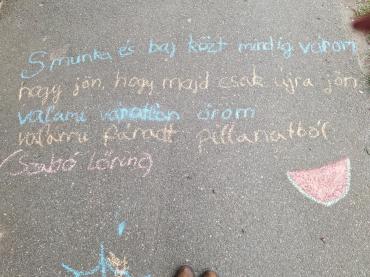 S munka és baj közt mindig várom
nagy jön, hogy majd csak ujra jön
valami váratlan öröm
valami fáradt pillanatból
(Szabó Lőrinc)